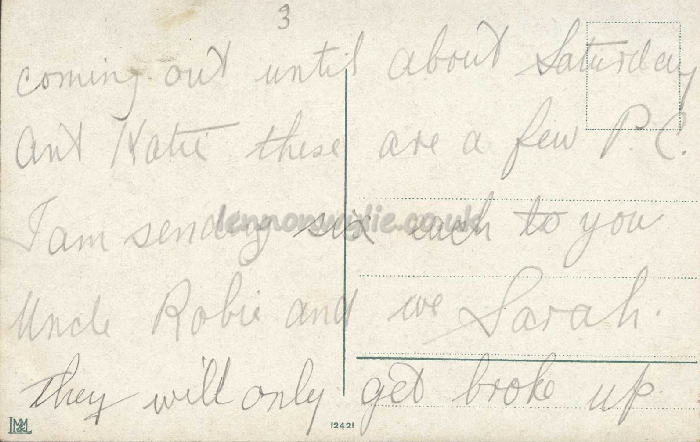 3
coming out until about Saturday
Ant Katie these are a few P.C.
I am sending six each to you
lennonwylie.co.uk
Uncle Robie and we Sarah.
they will only get broke up.
12421